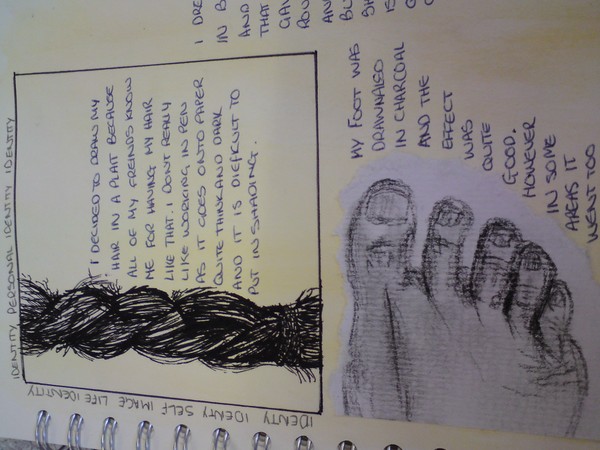 IDENTITY PERSONAL IDENTITY IDENTITY
IDENTY IDENTY SELF IMAGE LIFE IDENTITY
I DECIDED TO DRAW MY
HAIR IN A PLAIT BECAUSE
ALL OF MY FREINDS KNOW
ME FOR HAVING MY HAIR
LIKE THAT. I DONT REALLY
LIKE WORKING IN PEN
AS IT GOES ONTO PAPER
QUITE THINK AND DARK
AND IT IS DIEFICULT TO
PUT IN SHADING.
I
IN
AND
THAT
MY FOOT WAS
DRAWNALSO
IN CHARCOAL
AND THE
EFFECT
WAS
QUITE
GOOD.
HOWEVER
IN SOME
AREAS IT
WENT TOO